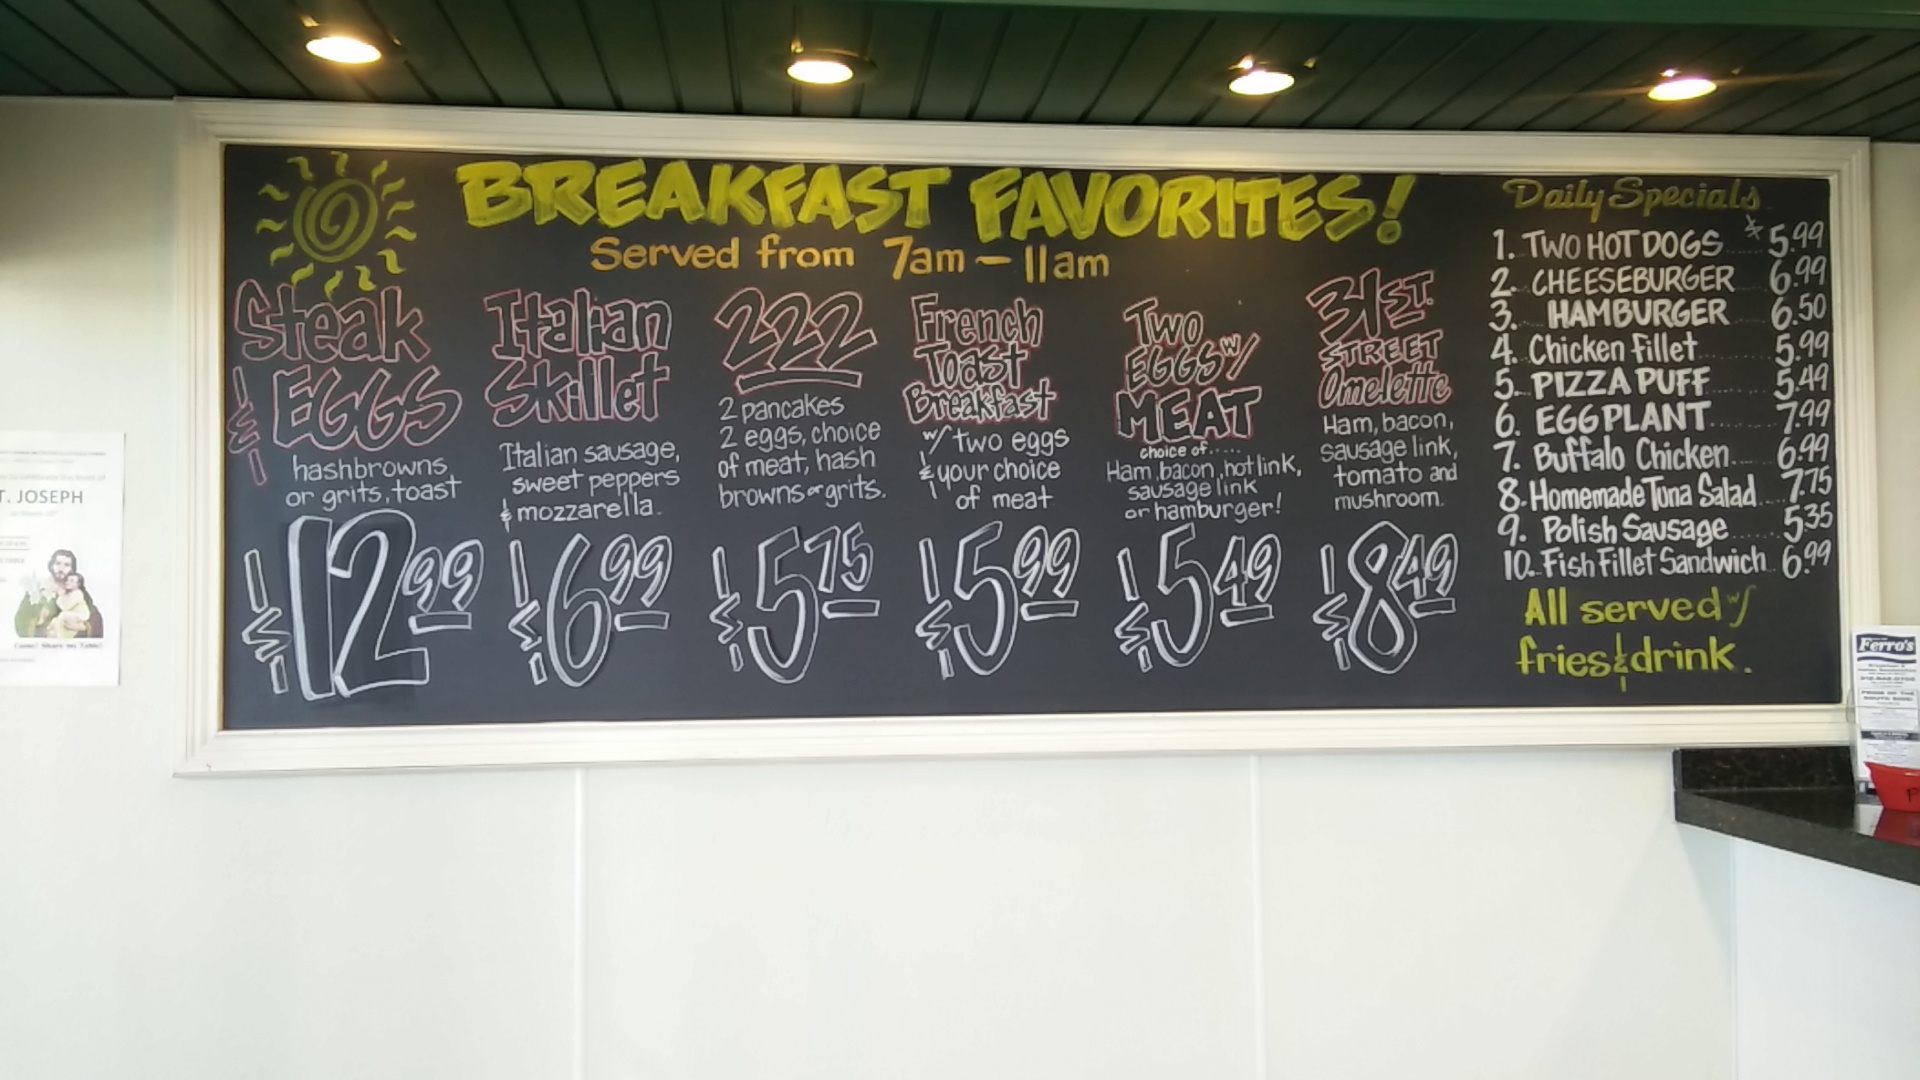 BREAKFAST FAVORITES!
Served from 7am – 11am
Steak
& EGGS
hashbrowns
or grits, toast
$12.99
Italian
Skillet
Italian sausage,
sweet peppers
& mozzarella.
$6.99
222
2 pancakes
2 eggs, choice
of meat, hash
browns or grits.
$5.75
French
Toast
Breakfast
w/ two eggs
& your choice
of meat
$5.99
Two
EGGS w/
MEAT
choice of.....
Ham, bacon, hotlink,
sausage link
or hamburger!
$5.49
31ST.
STREET
Omelette
Ham, bacon,
sausage link,
tomato and
mushroom.
$8.49
Daily Specials
1. TWO HOT DOGS $5.99
2. CHEESEBURGER 6.99
3. HAMBURGER 6.50
4. Chicken fillet 5.99
5. PIZZA PUFF 5.49
6. EGG PLANT 7.99
7. Buffalo Chicken 6.99
8. Homemade Tuna Salad 7.75
9. Polish Sausage 5.35
10. Fish Fillet Sandwich 6.99
All served w/
fries & drink.
T. JOSEPH
Come! Share my Table!
Ferro's
P